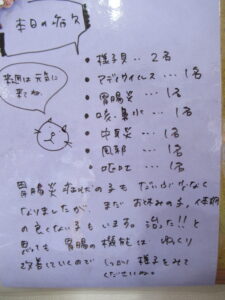 本日の病欠
来週は元気に
来てね。
・様子見‥2名
・アデノウイルス…1名
・胃腸炎…1名
・咳・鼻水…1名
・中耳炎…1名
・風邪…1名
・嘔吐…1名
胃腸炎症状の子もだいぶ少なく
なりましたが、まだお休みの子、体調
の良くない子もいます。治った!!と
思っても胃腸の機能はゆっくり
改善していくのでしっかり様子をみて
くださいね。